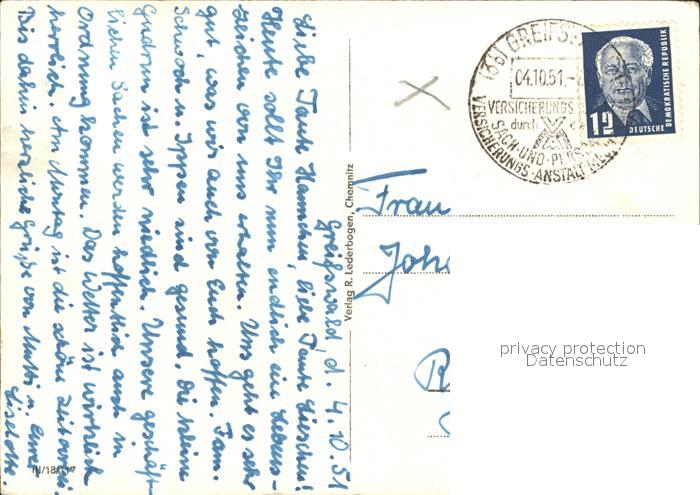 Greifswald, d. 4.10.51
Liebe Tante Hannchen, liebe Tante Lieschen!
Heute sollt Ihr nun endlich ein Lebens-
zeichen von uns erhalten. Uns geht es sehr
gut, was wir auch von Euch hoffen. Fam.
Schwoch u. Ippen sind gesund. Die kleine
Gudrun ist sehr niedlich. Unsere geschäft-
lichen Sachen werden hoffentlich auch in
Ordnung kommen. Das Wetter ist wirklich
herrlich. Am Montag ist die schöne Zeit vorbei.
Bis dahin herzliche Grüße von Mutti u. Eurer
Liselotte.
IV/18/117
Verlag R. Lederbogen, Chemnitz
(3b) GREIFS
04.10.51.-
VERSICHERUNGS
durch
SACH-UND-PERS
VERSICHERUNGS-ANSTALT
12
DEUTSCHE
DEMOKRATISCHE REPUBLIK
Frau
Joh
privacy protection
Datenschutz